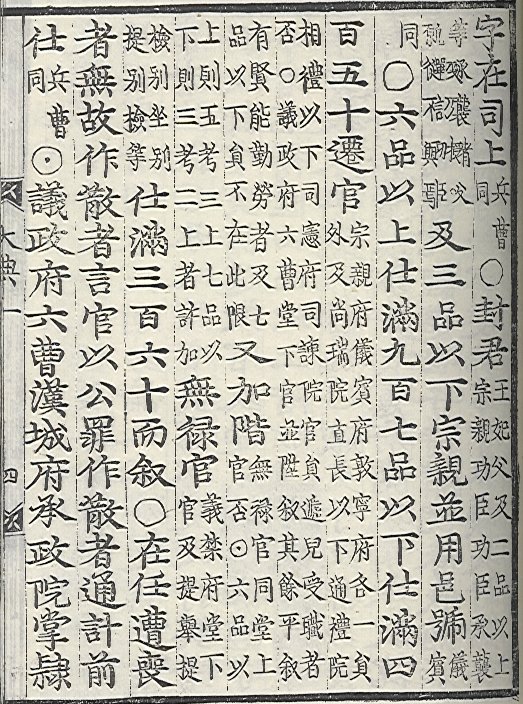 字在司上
兵曹
同
○封君
王妃父及二品以上
宗親功臣功臣承襲
等
及三品以下宗親並用邑號
儀
賓
同
○六品以上仕滿九百七品以下仕滿四
百五十遷官
宗親府儀賓府敦寧府各一員
外及尚瑞院直長以下通禮院
相禮以下司憲府司諫院官員遞兒受職者
否○議政府六曹堂下官並陞敍其餘平敍
有賢能勤勞者及七
品以下員不在此限
又加階
無祿官同堂上
官否⊙六品以
上則五考三上七品以
下則三考二上者許加
無祿官
義禁府堂下
官及提舉提
檢別坐別
提別檢等
仕滿三百六十而敍○在任遭喪
者無故作散者言官以公罪作散者通計前
仕
兵曹
同
⊙議政府六曹漢城府承政院掌隸
大典一
四